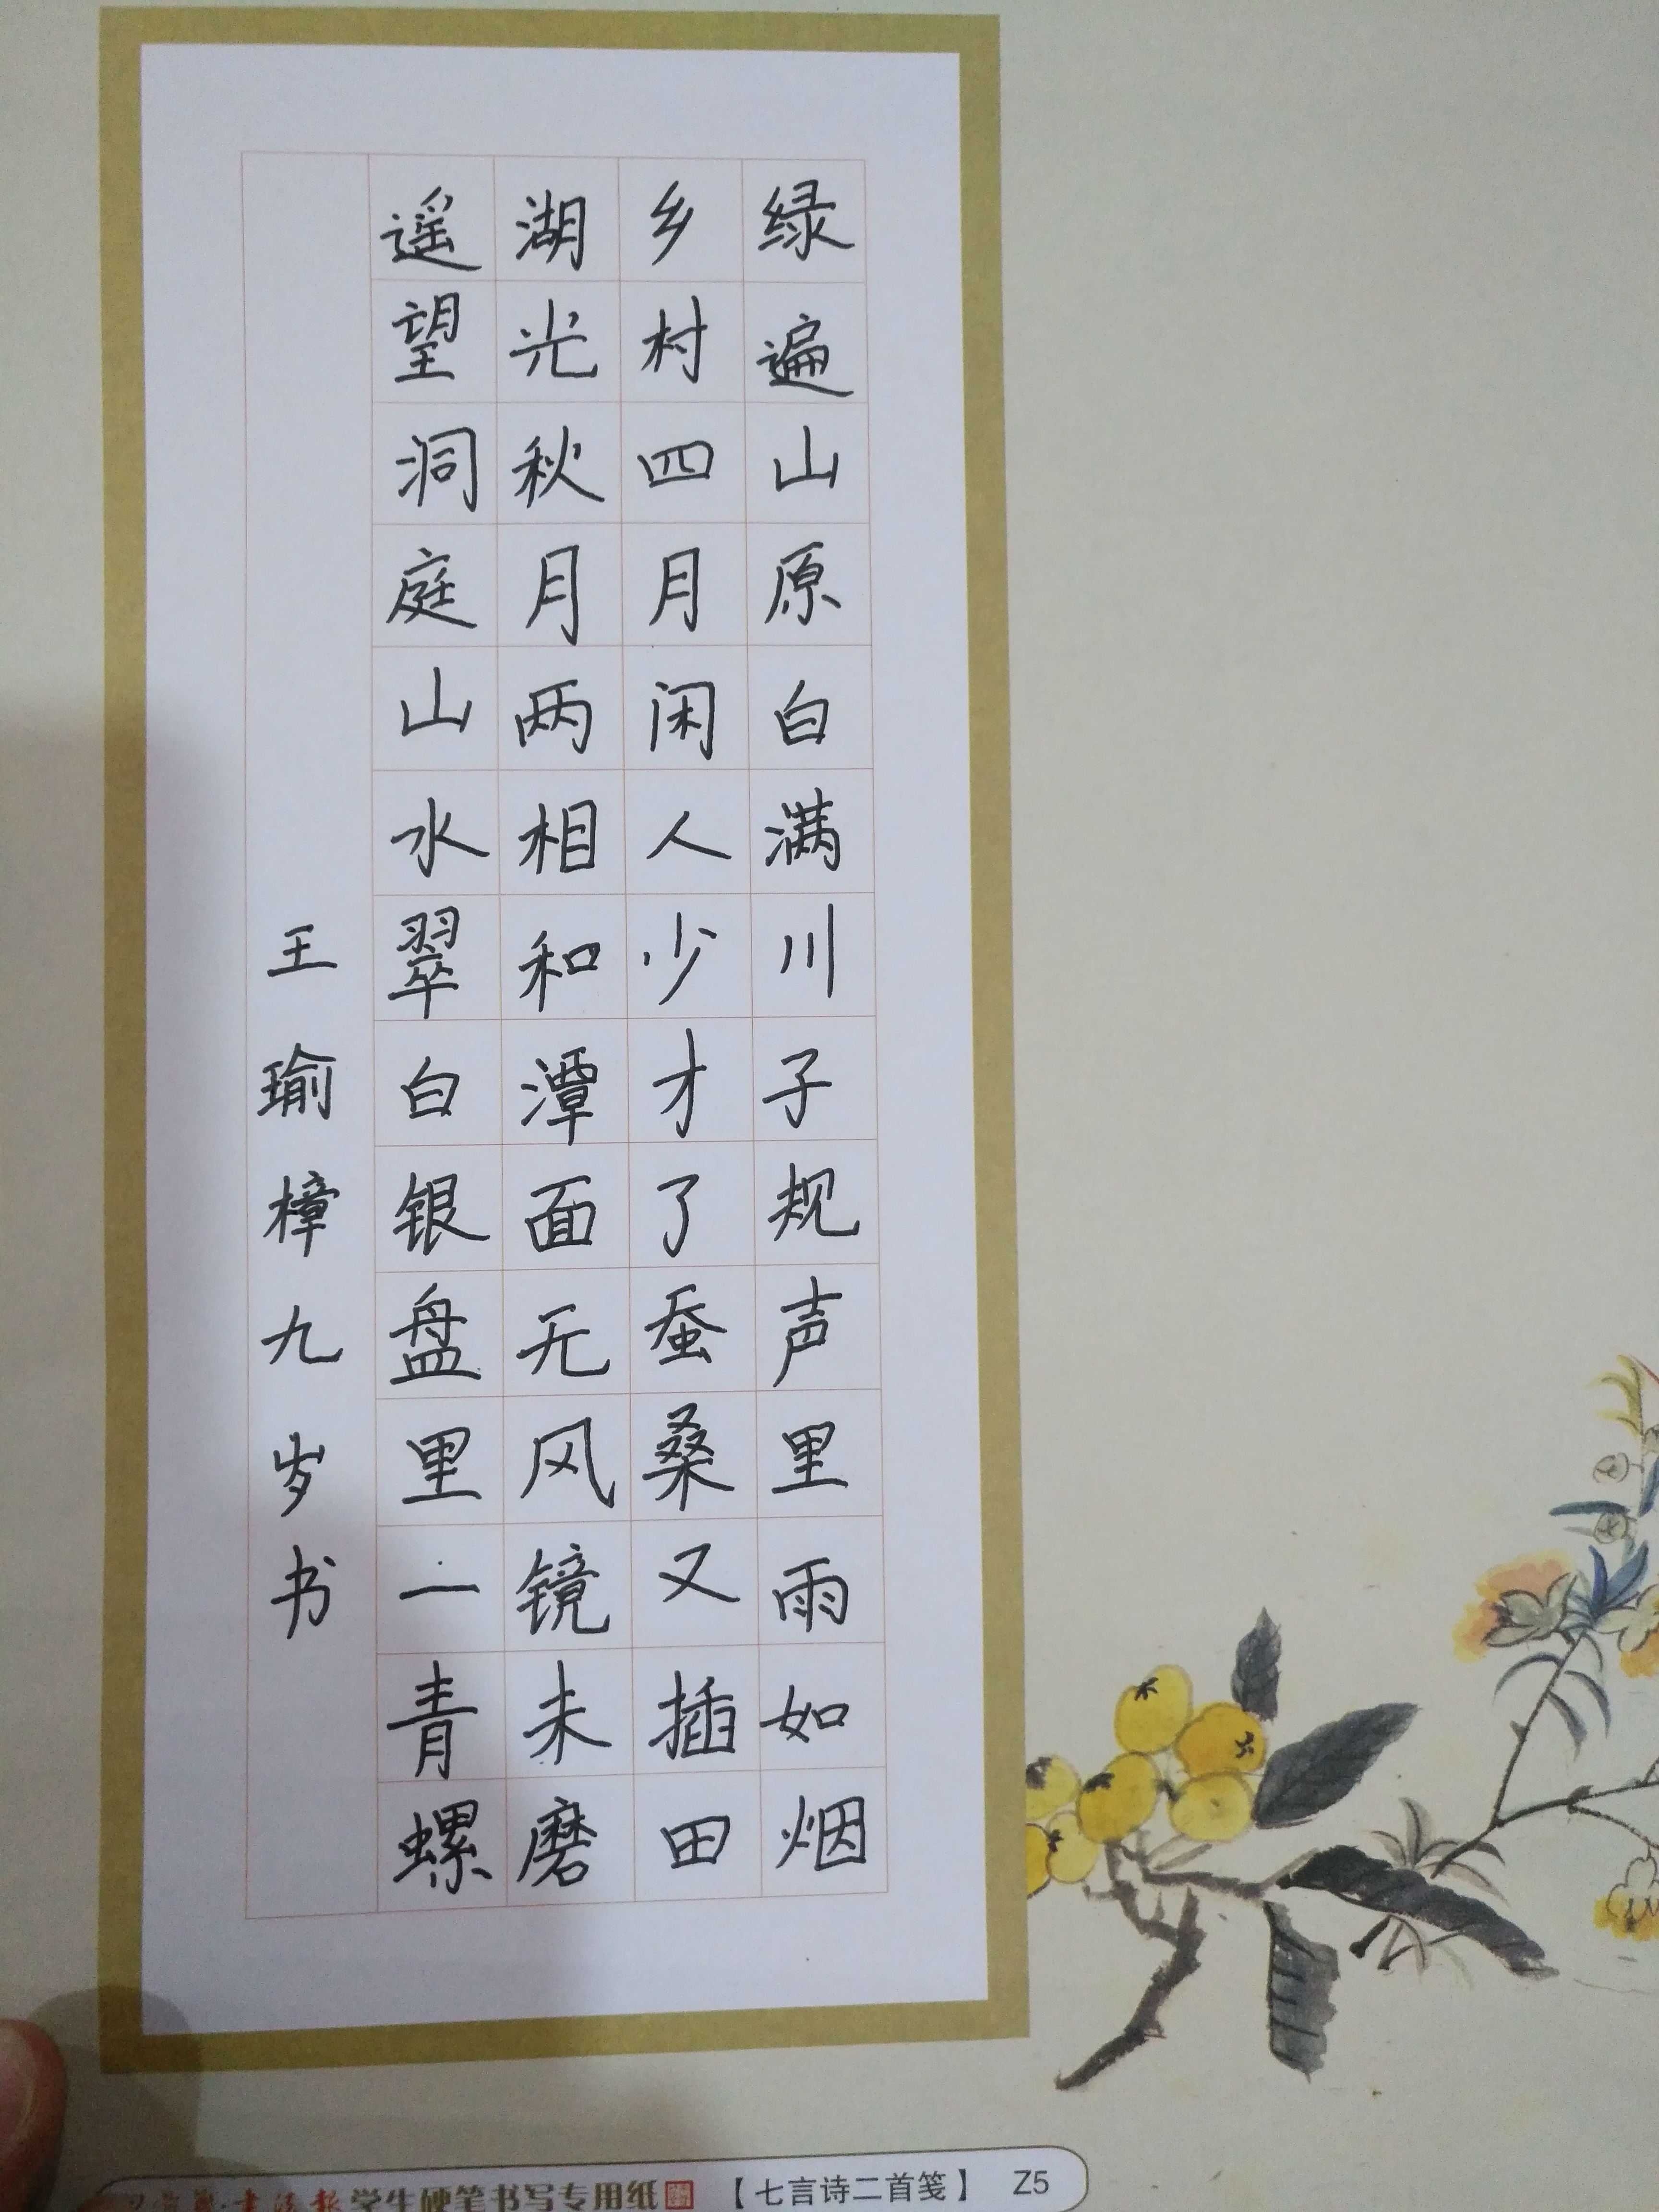 绿遍山原白满川子规声里雨如烟
乡村四月闲人少才了蚕桑又插田
湖光秋月两相和潭面无风镜未磨
遥望洞庭山水翠白银盘里一青螺
王瑜樟九岁书
书法报学生硬笔书写专用纸
【七言诗二首笺】 Z5